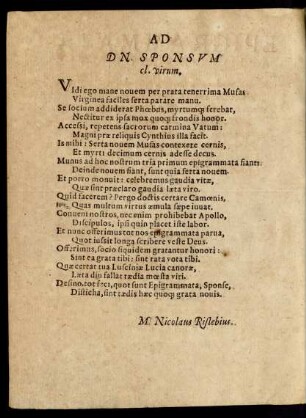 AD
DN. SPONSVM
cl. virum.
VIdi ego mane nouem per prata tenerrima Musas
Virgineâ faciles serta parare manu.
Se socium addiderat Phœbus, myrtumq; ferebat,
Nectitur ex ipsa mox quoq; frondis honor.
Accessi, repetens sacrorum carmina Vatum:
Magni præ reliquis Cynthius illa facit.
Is mihi: Serta nouem Musas contexere cernis,
Et myrti decimum cernis adesse decus.
Munus ad hoc nostrum tria primum epigrammata fiant:
Deinde nouem fiant, sunt quia serta nouem.
Et porrò monuit: celebremus gaudia vitæ,
Quæ sint præclaro gaudia læta viro.
Quid facerem? Pergo doctis certare Camœnis,
Quas multùm virtus æmula sæpe iuuat.
Conueni nostros, nec enim prohibebat Apollo,
Discipulos, ipsi quis placet iste labor.
Et nunc offerimus tot nos epigrammata parua,
Quot iussit longa scribere veste Deus.
Offerimus, socio siquidem gratantur honori:
Sint ea grata tibi: sint rata vota tibi.
Quæ certat tua Lusciniæ Lucia canoræ,
Læta diu fallat tædia mœsta viri.
Desino. tot quot sunt Epigrammata, Sponse,
Disticha, sint tædis hæc quoq; grata nouis.
M. Nicolaus Rislebius.